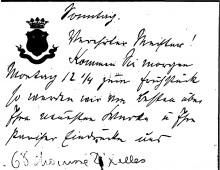 Sonntag.
Verehrter Meister!
Kommen Sie morgen
Montag 12 1/4 zum Frühstück
so werden wir am besten über
Ihre neuesten Werke u Ihre
Pariser Eindrücke und
68 Chaussée d'Ixelles